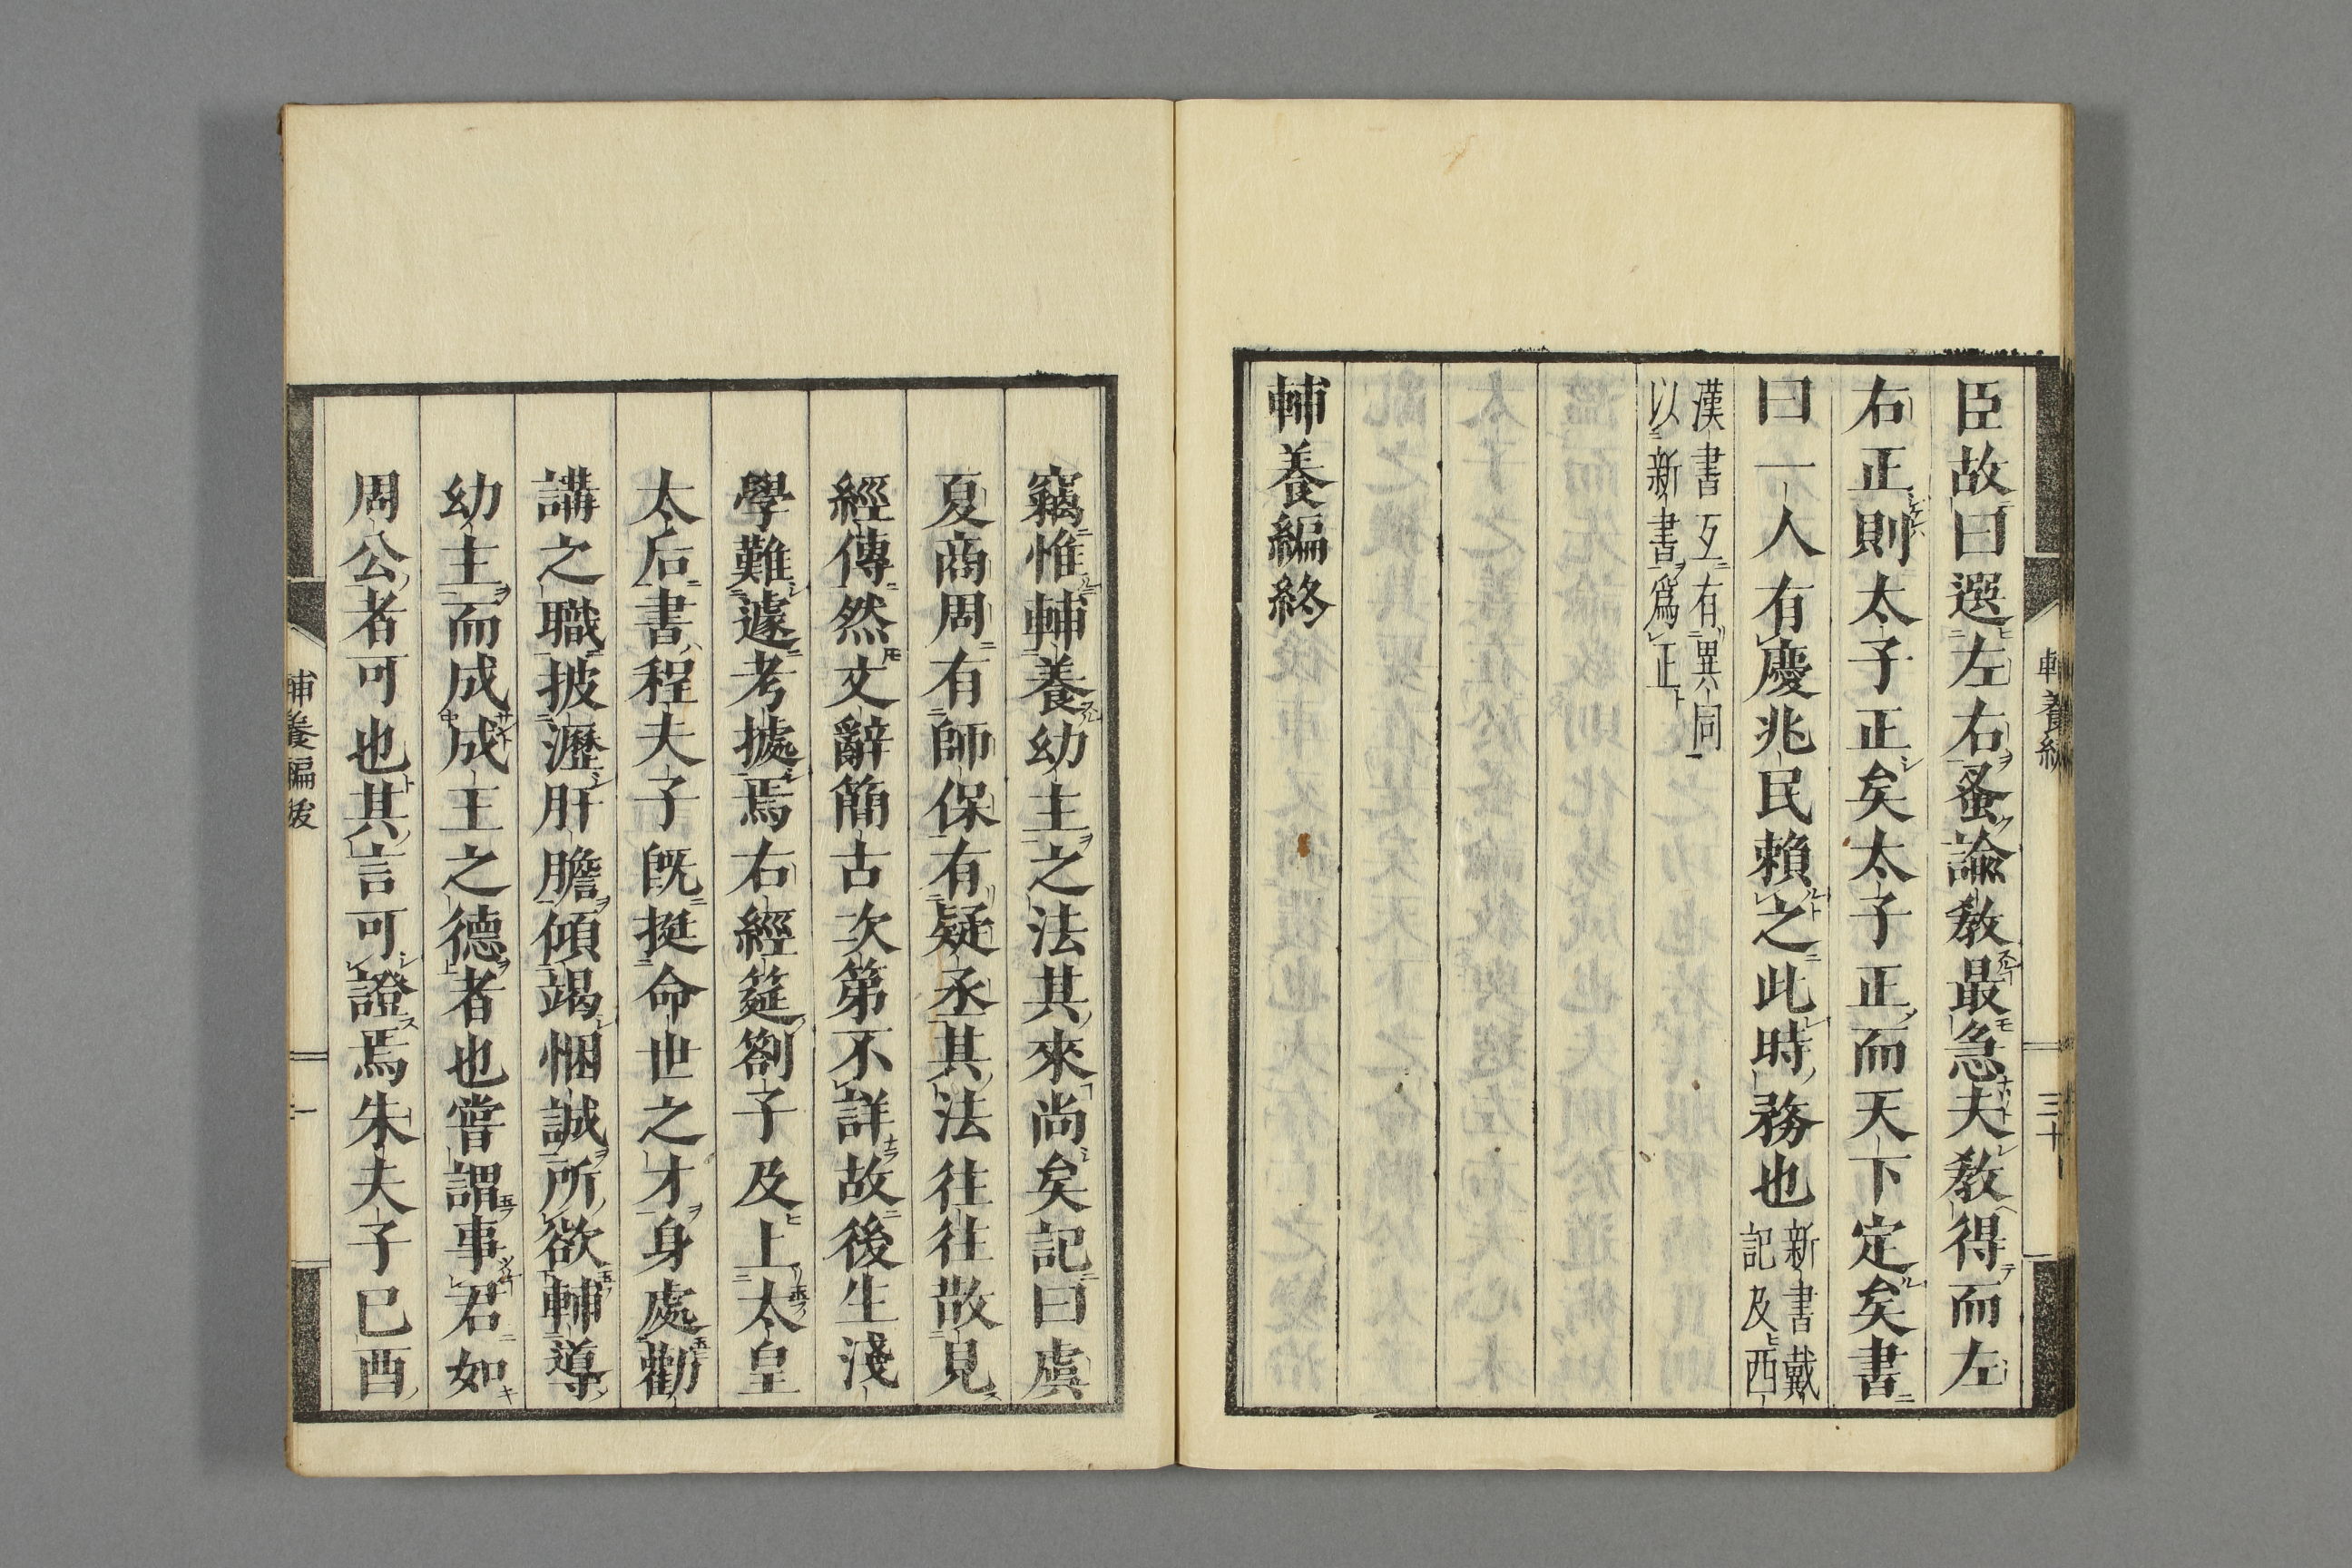 臣故曰選左右蚤諭敎最急夫敎得而左
右正則太子正矣太子正而天下定矣書
曰一人有慶兆民賴之此時務也新書戴
記及西
漢書互有異同
以新書爲正
輔養編終
竊惟輔養幼主之法其來尚矣記曰虞
夏商周有師保有疑丞其法往往散見
經傳然文辭簡古次第不詳故後生淺
學難遽考據焉右經筵劄子及上太皇
太后書程夫子旣挺命世之才身處勸
講之職披瀝肝膽傾竭悃誠所欲輔導
幼主而成成王之德者也嘗謂事君如
周公者可也其言可證焉朱夫子己酉
輔養編跋
一